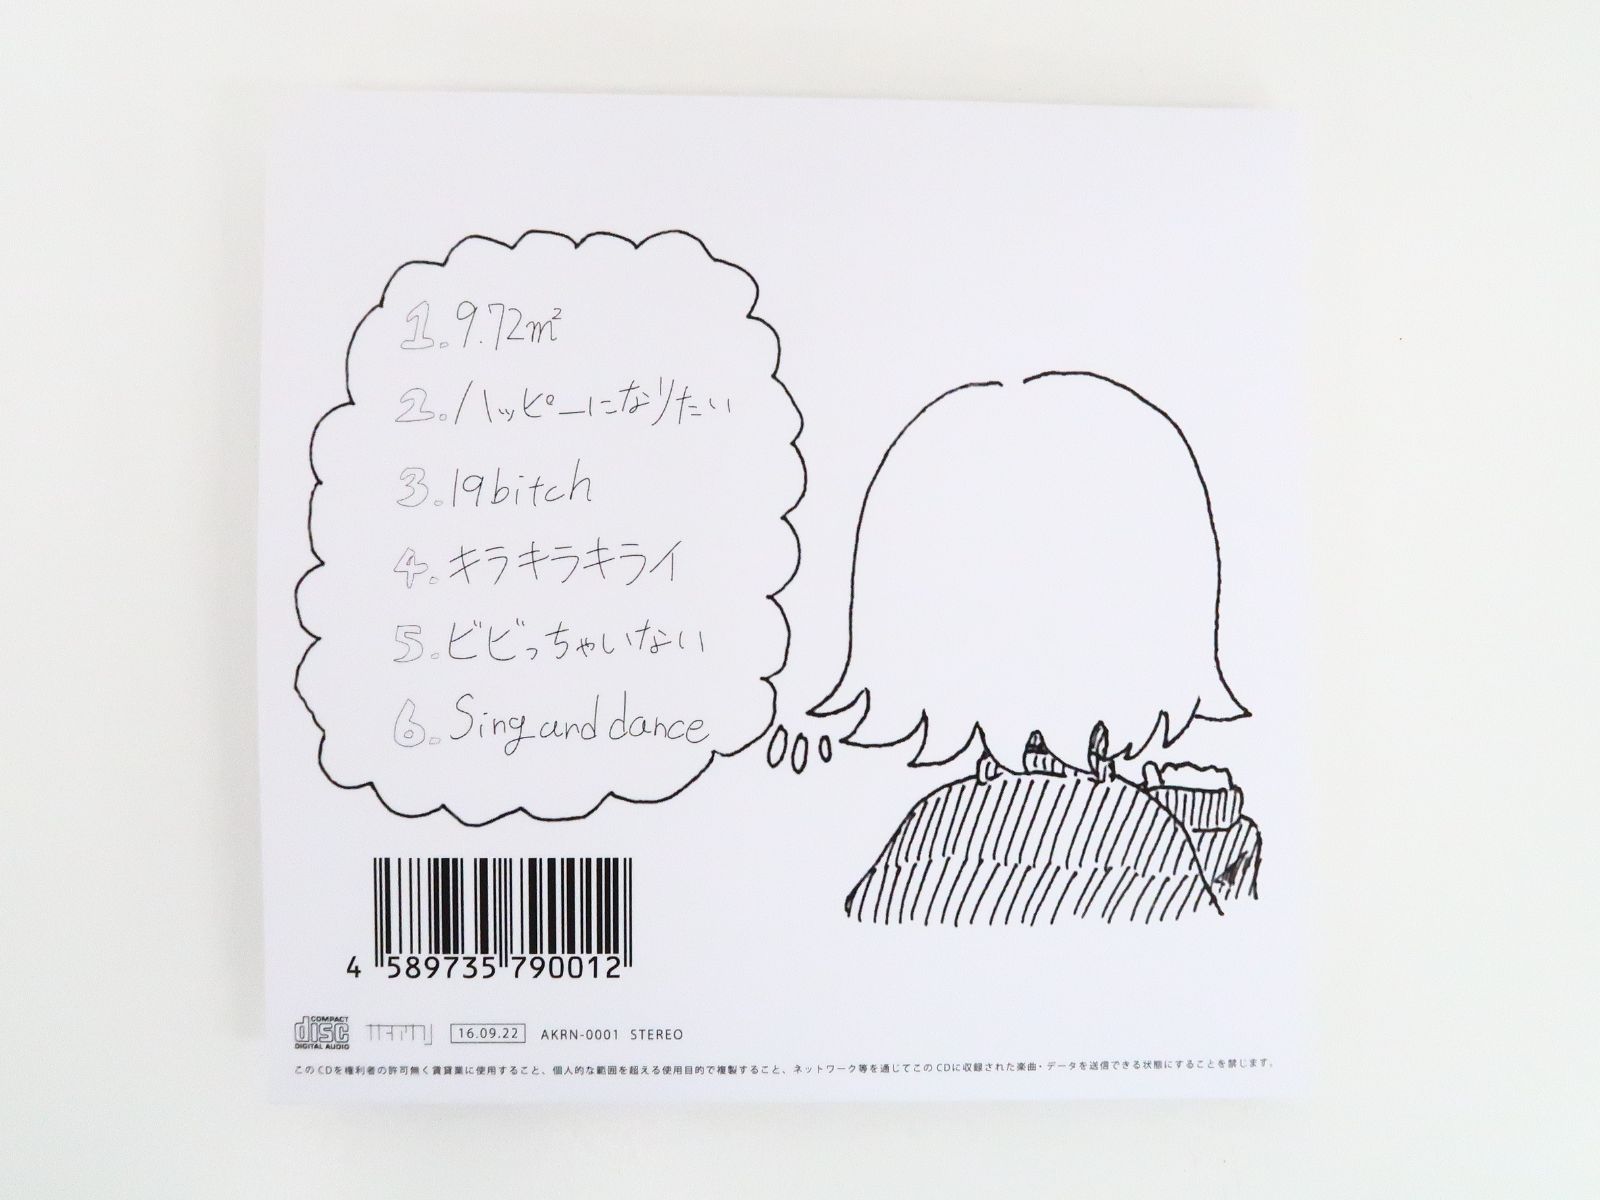 1. 9.72m²
2. ハッピーになりたい
3. 19bitch
4. キラキラキライ
5. ビビっちゃいない
6. Sing and dance
4 589735 790012
COMPACT
disc
DIGITAL AUDIO
16.09.22 AKRN-0001 STEREO
このCDを権利者の許可無く賃貸業に使用すること、個人的な範囲を超える使用目的で複製すること、ネットワーク等を通じてこのCDに収録された楽曲・データを送信できる状態にすることを禁じます。